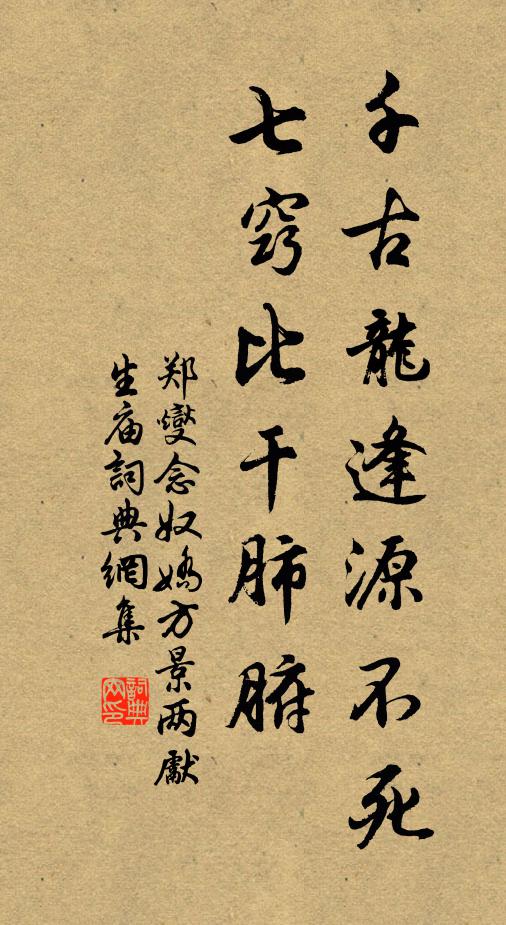 千古龍逢源不死
七窍比干肺腑
郑燮念奴嬌方景两獻
生庙詞典網集
詞典网印